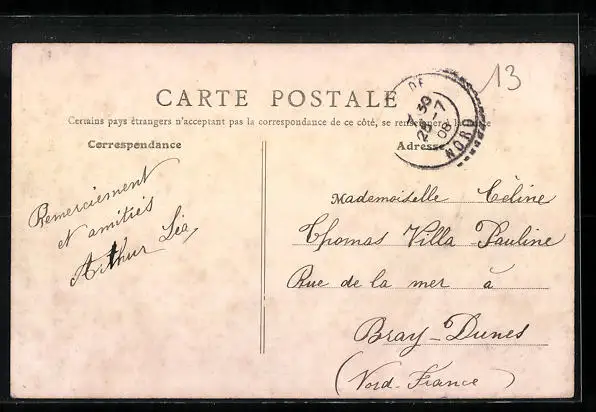 13
CARTE POSTALE
Certains pays étrangers n'acceptant pas la correspondance de ce côté, se renseigner à la
Correspondance
Adresse
DE
7 30
28 - 7
08
NORD
Remerciement
et amitiés
Arthur Léa
Mademoiselle Céline
Thomas Villa Pauline
Rue de la mer à
Bray-Dunes
(Nord-France)